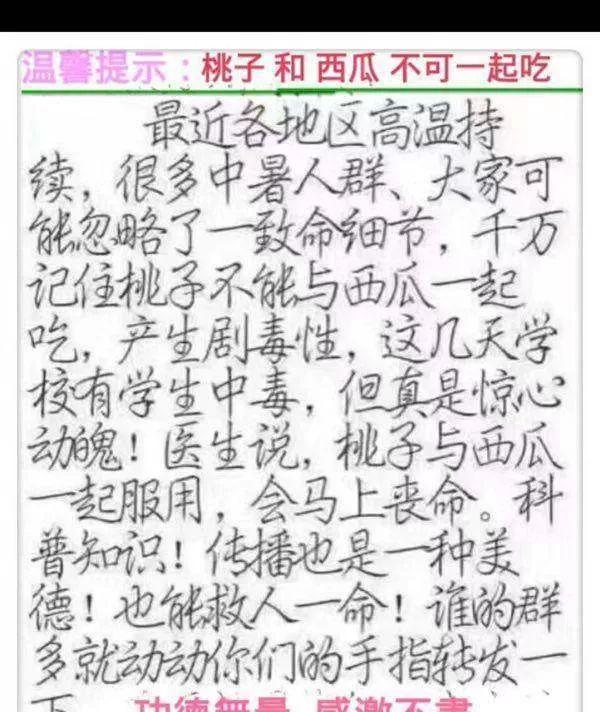 温馨提示：桃子 和 西瓜 不可一起吃
最近各地区高温持
续，很多中暑人群、大家可
能忽略了一致命细节，千万
记住桃子不能与西瓜一起
吃，产生剧毒性，这几天学
校有学生中毒，但真是惊心
动魄！医生说，桃子与西瓜
一起服用，会马上丧命。科
普知识！传播也是一种美
德！也能救人一命！谁的群
多就动动你们的手指转发一
下
功德無量 感激不盡